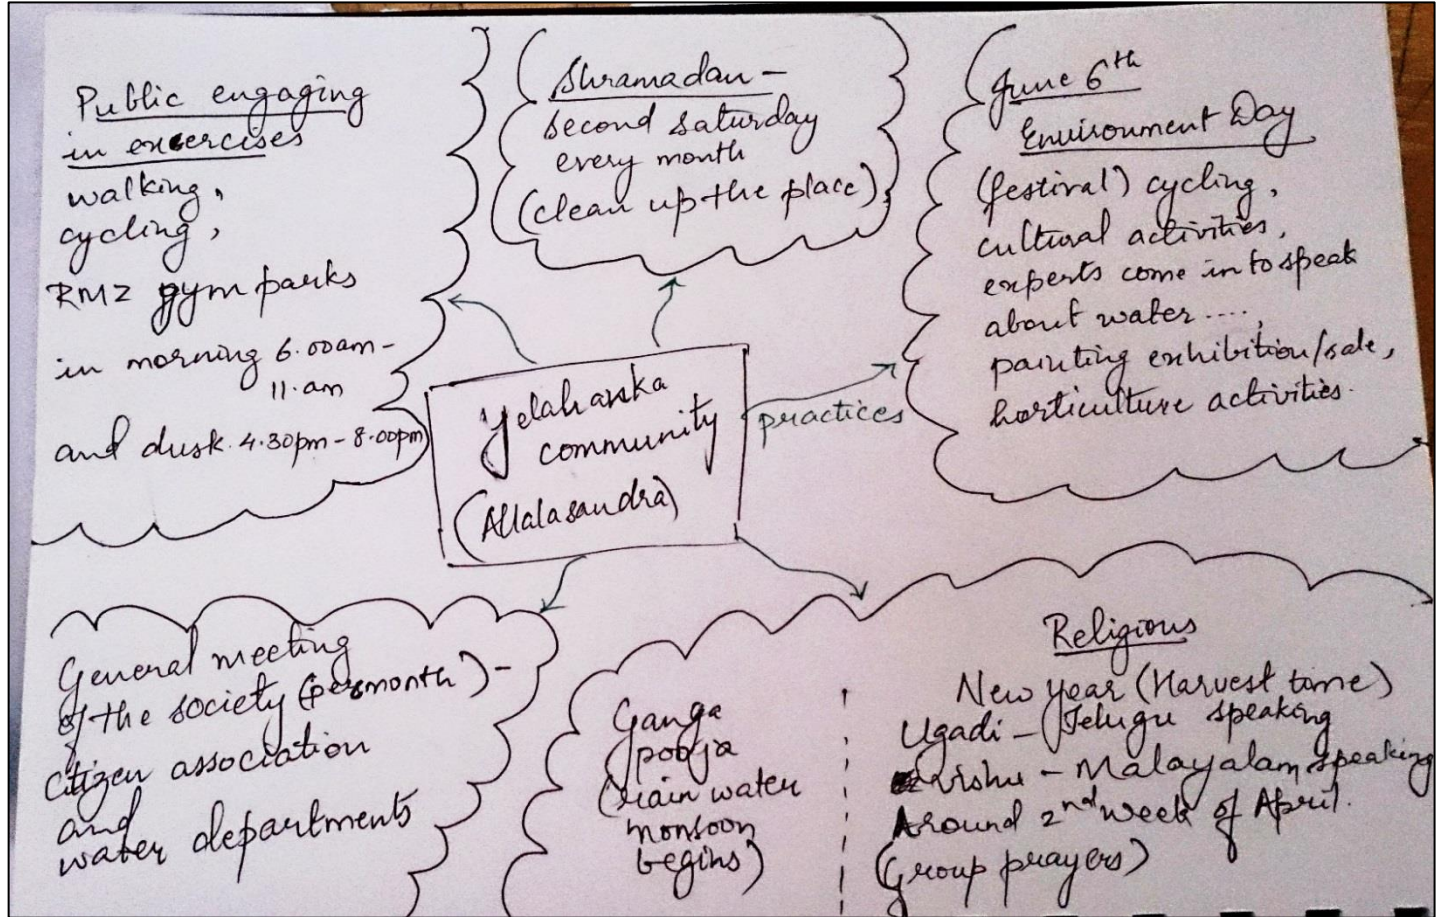 Public engaging
in excercises
walking,
cycling,
RMZ gym parks
in morning 6.00am -
11.am
and dusk. 4.30pm - 8.00pm
Shramadan -
second saturday
every month
(clean up the place)
June 6th
Environment Day
(festival) cycling,
cultural activities,
experts come in to speak
about water ....,
painting exhibition/sale,
horticulture activities.
Yelahanka
community
(Allalasandra)
practices
General meeting
of the society (per month) -
citizen association
and
water departments
Ganga
pooja
(rain water
monsoon
begins)
Religious
New Year (Harvest time)
Ugadi - Telugu speaking
vishu - Malayalam speaking
Around 2nd week of April.
(Group prayers)